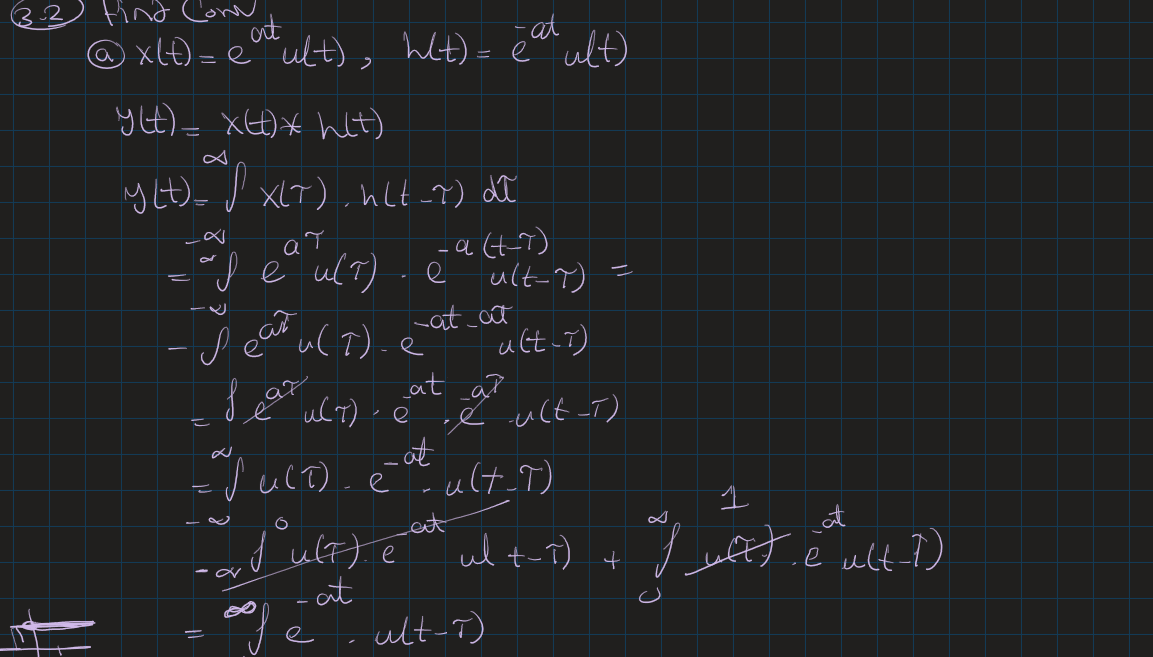 3.2 Find Conv
(a) x(t) = e^{at} u(t), h(t) = e^{-at} u(t)
y(t) = x(t) * h(t)
y(t) = ∫_{-∞}^{∞} x(τ) . h(t-τ) dτ
= ∫_{-∞}^{∞} e^{aτ} u(τ) . e^{-a(t-τ)} u(t-τ) =
- ∫ e^{aτ} u(τ) . e^{-at-aτ} u(t-τ)
= ∫ e^{aτ} u(τ) . e^{-at} . e^{-aτ} . u(t-τ)
= ∫_{-∞}^{∞} u(τ) . e^{-at} . u(t-τ)
∫_{-∞}^{0} u(τ) . e^{-at} u(t-τ) + ∫_{0}^{∞} u(τ) 1 . e^{-at} u(t-τ)
= ∫^{∞} e^{-at} . u(t-τ)